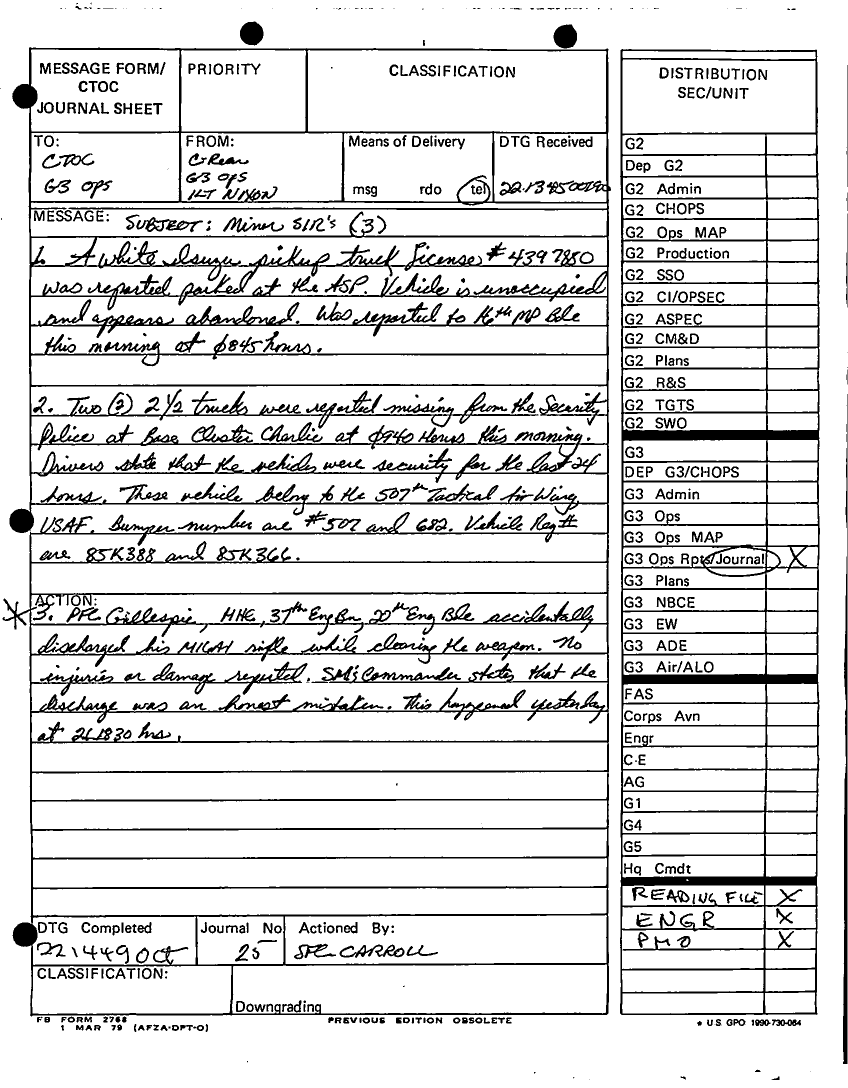 MESSAGE FORM/
CTOC
JOURNAL SHEET
PRIORITY
CLASSIFICATION
TO:
CTOC
G3 OPS
FROM:
C-Rear
G3 OPS
1LT NIXON
Means of Delivery
msg rdo tel
DTG Received
MESSAGE: SUBJECT: Minor SIR's (3)
1. A white Isuzu pickup truck license # 4397850
was reported parked at the ASP. Vehicle is unoccupied
and appears abandoned. Was reported to 16th MP Bde
this morning at 0845 hours.
2. Two (2) 2 1/2 trucks were reported missing from the Security
Police at Base Cluster Charlie at 0940 Hours this morning.
Drivers state that the vehicles were security for the last 24
hours. These vehicle belong to the 507th Tactical Air Wing,
USAF. Bumper number are #507 and 682. Vehicle Reg#
are 85K388 and 85K366.
ACTION:
3. PFC Gillespie, HHC, 37th Eng Bn, 20th Eng Bde accidentally
discharged his M16A1 rifle while clearing the weapon. No
injuries or damage reported. SM's Commander states that the
discharge was an honest mistaken. This happened yesterday
at 211830 hrs.
DTG Completed
221449 Oct
Journal No
25
Actioned By:
SFC CARROLL
CLASSIFICATION:
Downgrading
FB FORM 2768
1 MAR 79 (AFZA-DPT-O)
PREVIOUS EDITION OBSOLETE
DISTRIBUTION
SEC/UNIT
G2
Dep G2
G2 Admin
G2 CHOPS
G2 Ops MAP
G2 Production
G2 SSO
G2 CI/OPSEC
G2 ASPEC
G2 CM&D
G2 Plans
G2 R&S
G2 TGTS
G2 SWO
G3
DEP G3/CHOPS
G3 Admin
G3 Ops
G3 Ops MAP
G3 Ops Rpts/Journal X
G3 Plans
G3 NBCE
G3 EW
G3 ADE
G3 Air/ALO
FAS
Corps Avn
Engr
C-E
AG
G1
G4
G5
Hq Cmdt
READING FILE X
ENGR X
PMO X
* US GPO 1990-730-064